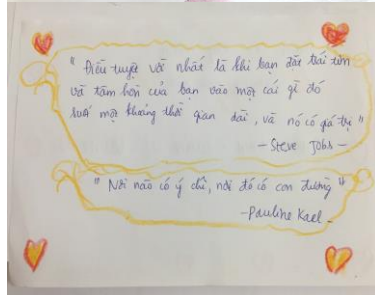 " Điều tuyệt vời nhất là khi bạn đặt trái tim
và tâm hồn của bạn vào một cái gì đó
suốt một khoảng thời gian dài, và nó có giá trị "
- Steve Jobs -
" Nơi nào có ý chí, nơi đó có con đường "
- Pauline Kael -